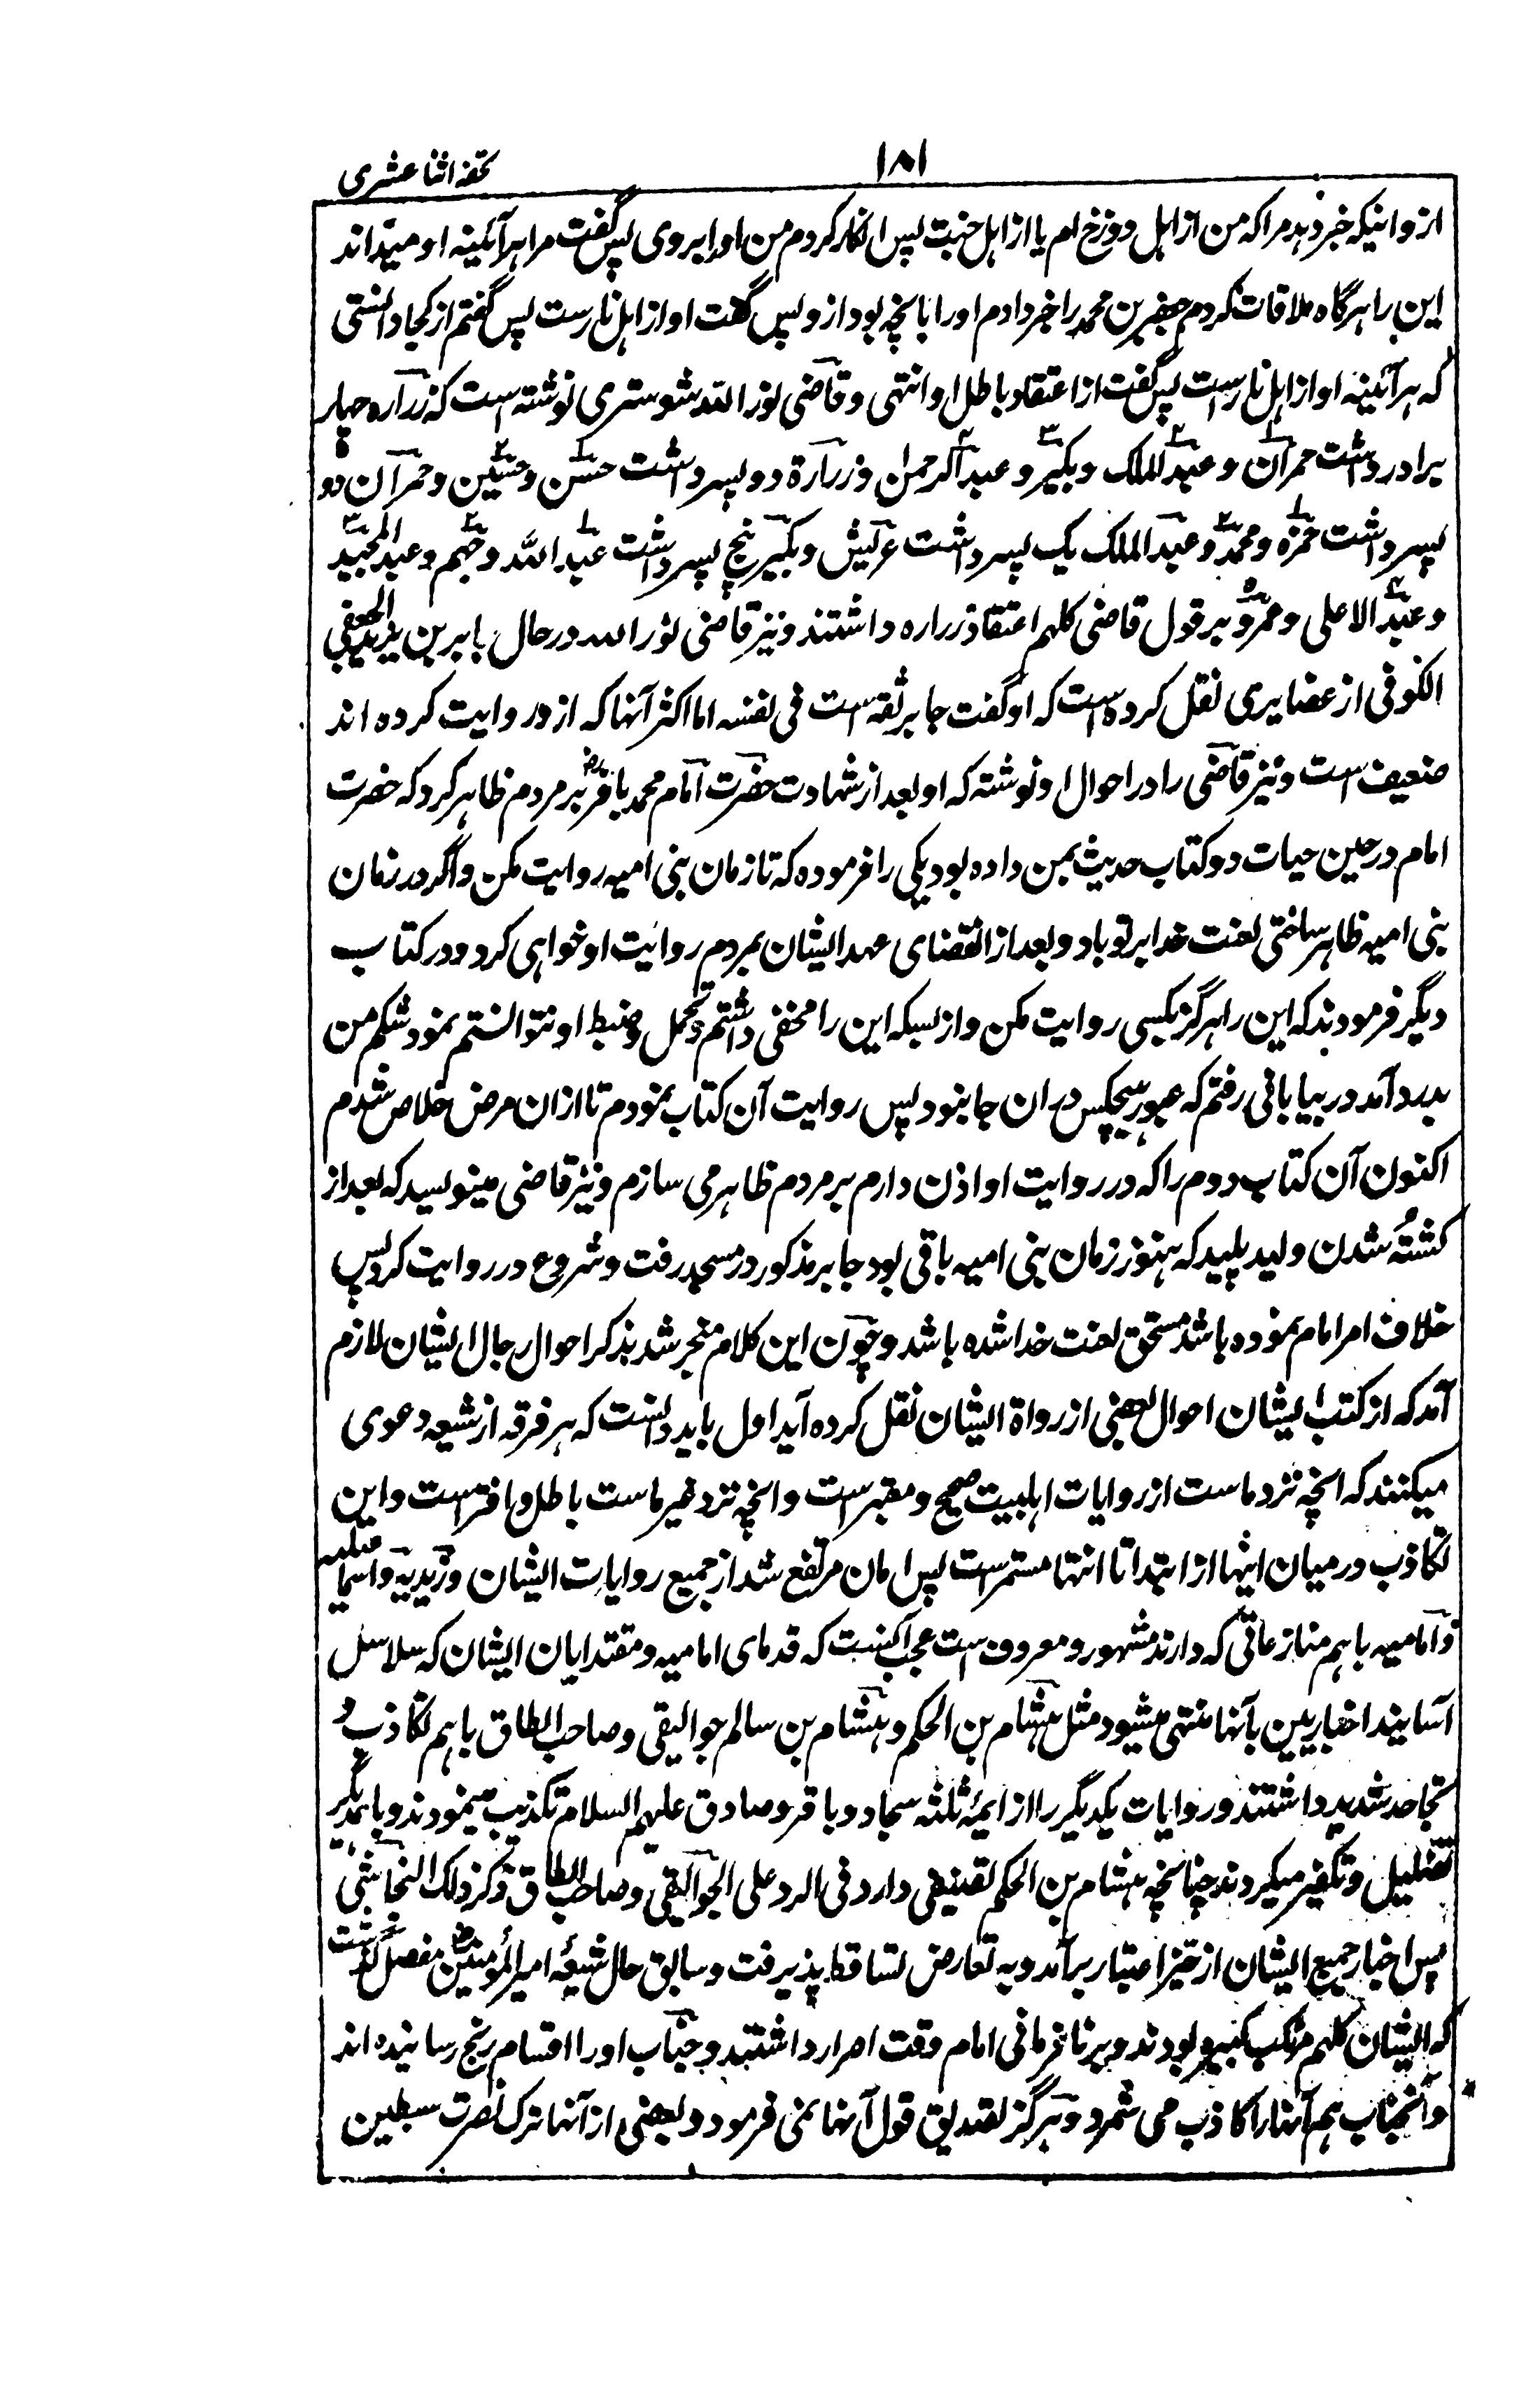 ۱۸۱
تحفه اثنا عشری
از و اینکه خبر دهد مرا که من از اهل دوزخ ام یا از اهل جنت پس انکار کردم من او را بروی پس گفت مرا هر آئینه او میداند
این را هر گاه ملاقات کردم جعفر بن محمد را خبر دادم او را بانچه بود از و پس گفت او از اهل نارست پس گفتم از کجا دانستی
که هر آئینه او از اهل نارست پس گفت از اعتقاد باطل او انتهی و قاضی نور الله شوستری نوشته است که زراره چهار
برادر داشت حمران و عبد الملک و بکیر و عبد الرحمن و زرارة دو پسر داشت حسن و حسین و حمران دو
پسر داشت حمزه و محمد و عبد الملک یک پسر داشت عریش و بکیر پنج پسر داشت عبد الله و جهم و عبد المجید
و عبد الاعلی و عمرو بر قول قاضی کلهم اعتقاد زراره داشتند و نیز قاضی نور الله در حال جابر بن یزید الجعفی
الکوفی از عضایری نقل کرده است که او گفت جابر ثقه است فی نفسه اما اکثر آنها که از و روایت کرده اند
ضعیف است و نیز قاضی را در احوال او نوشته که او بعد از شهادت حضرت امام محمد باقر رض بر مردم ظاهر کرد که حضرت
امام در حین حیات دو کتاب حدیث بمن داده بود یکی را فرموده که تا زمان بنی امیه روایت مکن و اگر در زمان
بنی امیه ظاهر ساختی لعنت خدا بر تو باد و بعد از انقضای عهد ایشان بمردم روایت او خواهی کرد و در کتاب
دیگر فرمودند که این را هرگز بکسی روایت مکن و از بسکه این را مخفی داشتم و تحمل و ضبط او نتوانستم نمود شکم من
بدرد آمد در بیابانی رفتم که عبور هیچکس در ان جا نبود پس روایت آن کتاب نمودم تا از ان مرض خلاص شدم
اکنون آن کتاب دوم را که در روایت او اذن دارم بر مردم ظاهر می سازم و نیز قاضی مینویسد که بعد از
کشته شدن ولید پلید که هنوز زمان بنی امیه باقی بود جابر مذکور در مسجد رفت و شروع در روایت کرد پس
خلاف امر امام نموده باشد مستحق لعنت خدا شده باشد و چون این کلام منجر شد بذکر احوال رجال ایشان لازم
آمد که از کتب ایشان احوال بعضی از رواة ایشان نقل کرده آید اول باید دانست که هر فرقه از شیعه دعوی
میکنند که انچه نزد ماست از روایات اهلبیت صحیح و معتبر است و انچه نزد غیر ماست باطل و افتراست و این
تکاذب در میان اینها از ابتدا تا انتها مستمر است پس امان مرتفع شد از جمیع روایات ایشان و زیدیه و اسماعیلیه
و امامیه باهم منازعاتی که دارند مشهور و معروف است عجب اینست که قدمای امامیه و مقتدایان ایشان که سلاسل
آسانید اخباریین بآنها منتهی میشود مثل هشام بن الحکم و هشام بن سالم جوالیقی و صاحب الطاق باهم تکاذب و
تجاحد شدید داشتند و روایات یکدیگر را از ایمهٔ ثلثه سجاد و باقر و صادق علیهم السلام تکذیب مینمودند و باهمدیگر
تضلیل و تکفیر میکردند چنانچه هشام بن الحکم تصنیفی دارد فی الرد علی الجوالیقی و صاحب الطاق ذکر ذلک النجاشی
پس اخبار جمیع ایشان از حیز اعتبار برآمد و به تعارض تساقط پذیرفت و سابق حال شیعهٔ امیر المؤمنین مفصل گذشت
که ایشان کلهم مرتکب کبیره بودند و بر نافرمانی امام وقت اصرار داشتند و جناب او را اقسام رنج رسانیده اند
و آنجناب هم آنها را کاذب می شمرد و هرگز تصدیق قول آنها نمی فرمود و بعضی از آنها ترک نصرت سبطین